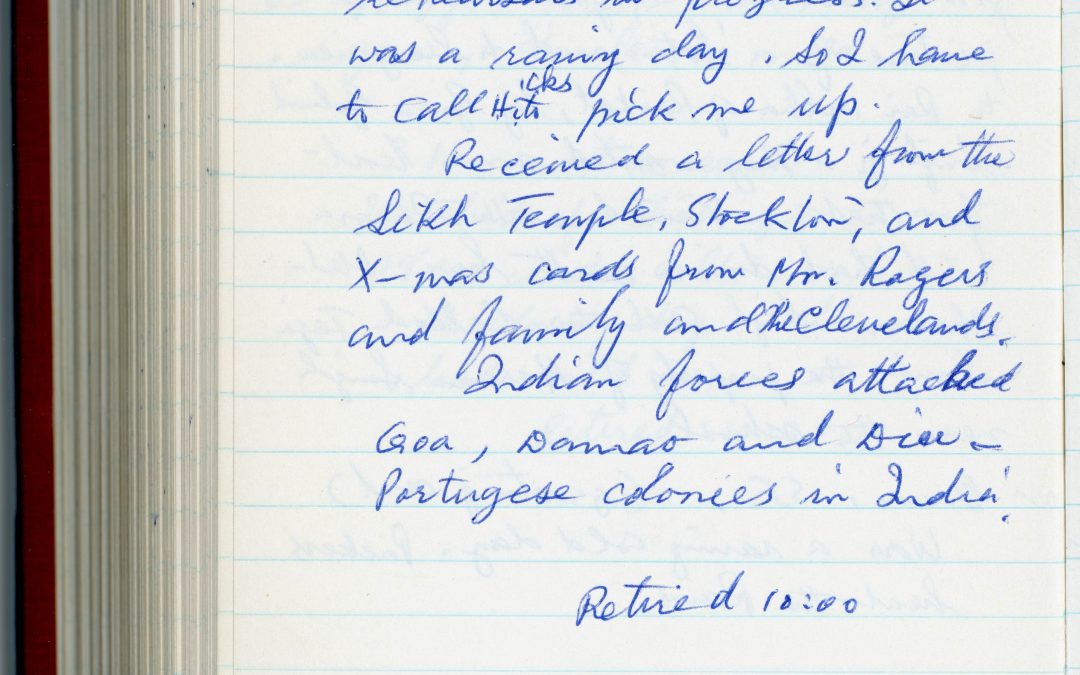 in progress. It
was a rainy day. So I have
to call Hicks to pick me up.
Received a letter from the
Sikh Temple, Stockton, and
X-mas cards from Mr. Rogers
and family and the Clevelands.
Indian forces attacked
Goa, Damao and Diu -
Portugese colonies in India.
Retired 10:00